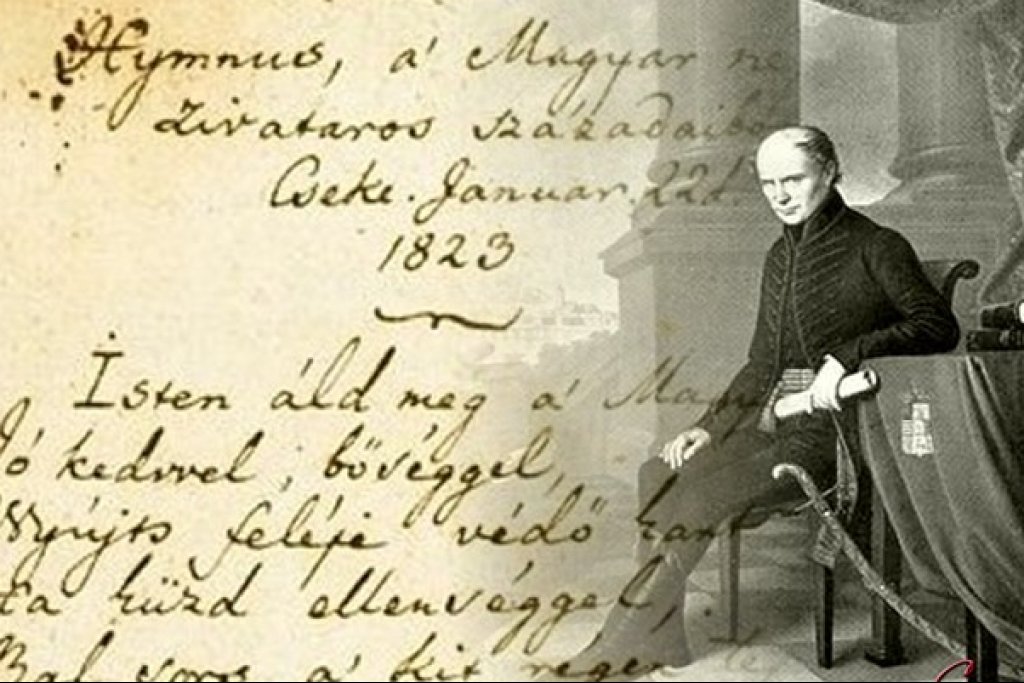 Hymnus, a' Magyar ne
zivataros századaibó
Cseke. Januar. 22d.
1823
Isten áld meg a' Magy
Jó kedvvel, bőséggel,
Nyújts feléje védő kart
Ha küzd ellenséggel,
Bal sors a' kit régen te